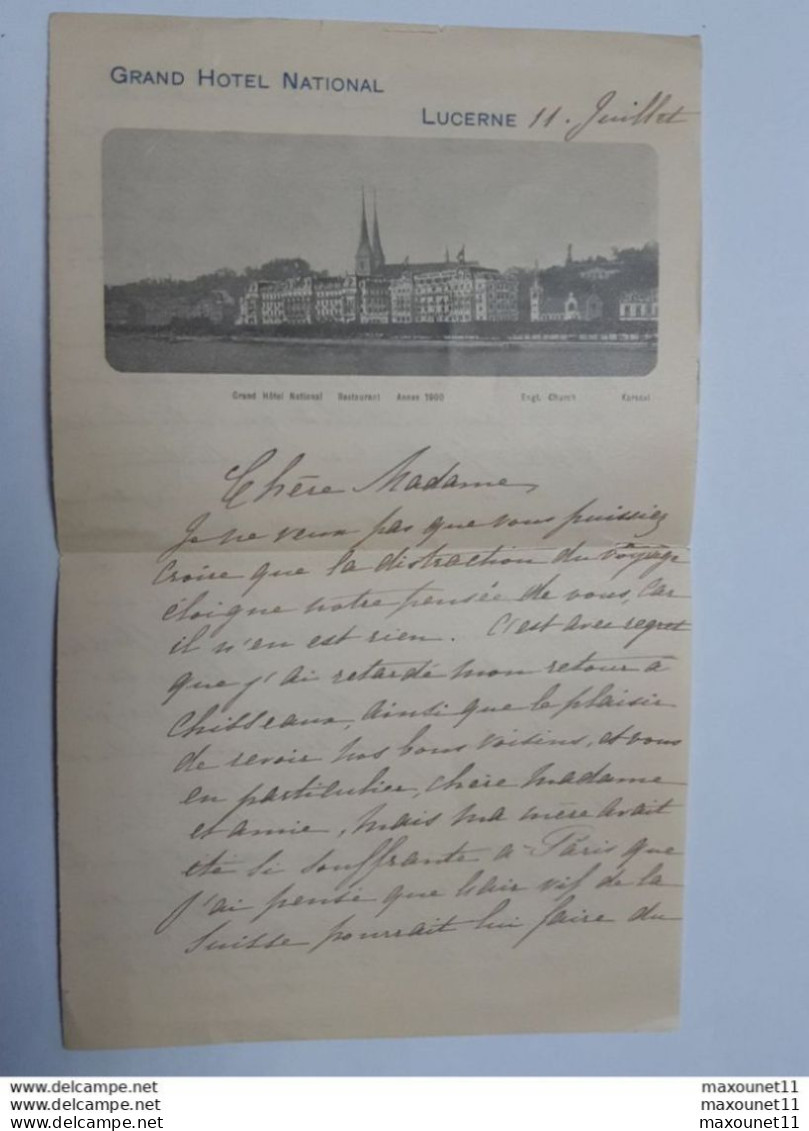 GRAND HOTEL NATIONAL
LUCERNE 11. Juillet
Grand Hôtel National Restaurant Annex 1900 Engl. Church Kursaal
Chère Madame,
Je ne veux pas que vous puissiez
croire que la distraction du voyage
éloigne notre pensée de vous, car
il n'en est rien. C'est avec regret
que j'ai retardé mon retour à
Chisseaux, ainsi que le plaisir
de revoir nos bons voisins, et vous
en particulier, chère Madame
et amie, mais ma mère avait
été si souffrante à Paris que
j'ai pensé que l'air vif de la
Suisse pourrait lui faire du
www.delcampe.net maxounet11
www.delcampe.net maxounet11
www.delcampe.net maxounet11